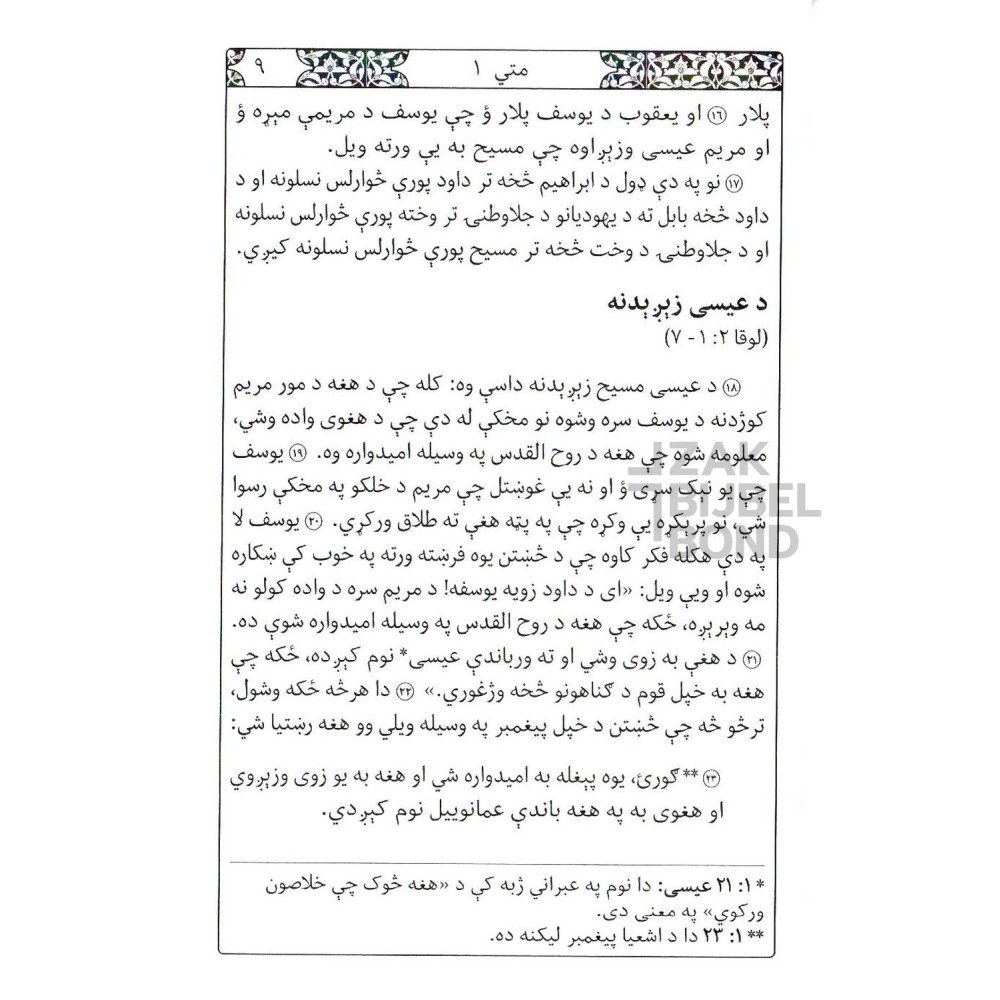 متي ۱
۹
پلار ⑯ او يعقوب د يوسف پلار ؤ چې يوسف د مريمې مېړه ؤ
او مريم عيسی وزېږاوه چې مسيح به يې ورته ويل.
⑰ نو په دې ډول د ابراهيم څخه تر داود پورې څوارلس نسلونه او د
داود څخه بابل ته د يهوديانو د جلاوطنۍ تر وخته پورې څوارلس نسلونه
او د جلاوطنۍ د وخت څخه تر مسيح پورې څوارلس نسلونه کيږي.
د عيسی زېږېدنه
(لوقا ۲: ۱ - ۷)
⑱ د عيسی مسيح زېږېدنه داسې وه: کله چې د هغه د مور مريم
کوژدنه د يوسف سره وشوه نو مخکې له دې چې د هغوی واده وشي،
معلومه شوه چې هغه د روح القدس په وسيله اميدواره وه. ⑲ يوسف
چې يو نېک سړی ؤ او نه يې غوښتل چې مريم د خلکو په مخکې رسوا
شي، نو پرېکړه يې وکړه چې په پټه هغې ته طلاق ورکړي. ⑳ يوسف لا
په دې هکله فکر کاوه چې د څښتن يوه فرښته ورته په خوب کې ښکاره
شوه او ويې ويل: «ای د داود زويه يوسفه! د مريم سره د واده کولو نه
مه وېرېږه، ځکه چې هغه د روح القدس په وسيله اميدواره شوې ده.
㉑ د هغې به زوی وشي او ته ورباندې عيسی* نوم کېږده، ځکه چې
هغه به خپل قوم د ګناهونو څخه وژغوري.» ㉒ دا هرڅه ځکه وشول،
ترڅو څه چې څښتن د خپل پيغمبر په وسيله ويلي وو هغه رښتيا شي:
㉓ **ګورئ، يوه پېغله به اميدواره شي او هغه به يو زوی وزېږوي
او هغوی به په هغه باندې عمانوييل نوم کېږدي.
* ۱: ۲۱ عيسی: دا نوم په عبراني ژبه کې د «هغه څوک چې خلاصون
ورکوي» په معنی دی.
** ۱: ۲۳ دا د اشعيا پيغمبر ليکنه ده.
IZAK
BIJBEL
BOND